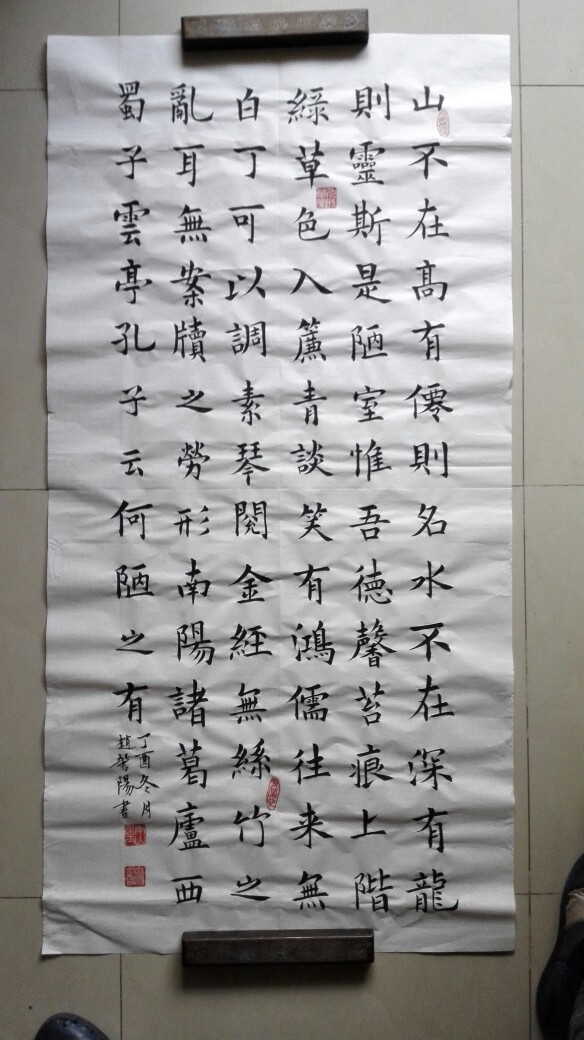 山不在高有僊則名水不在深有龍
則靈斯是陋室惟吾德馨苔痕上階
綠草色入簾青談笑有鴻儒往来無
白丁可以調素琴閱金經無絲竹之
亂耳無案牘之勞形南陽諸葛廬西
蜀子雲亭孔子云何陋之有
丁酉冬月
陽書